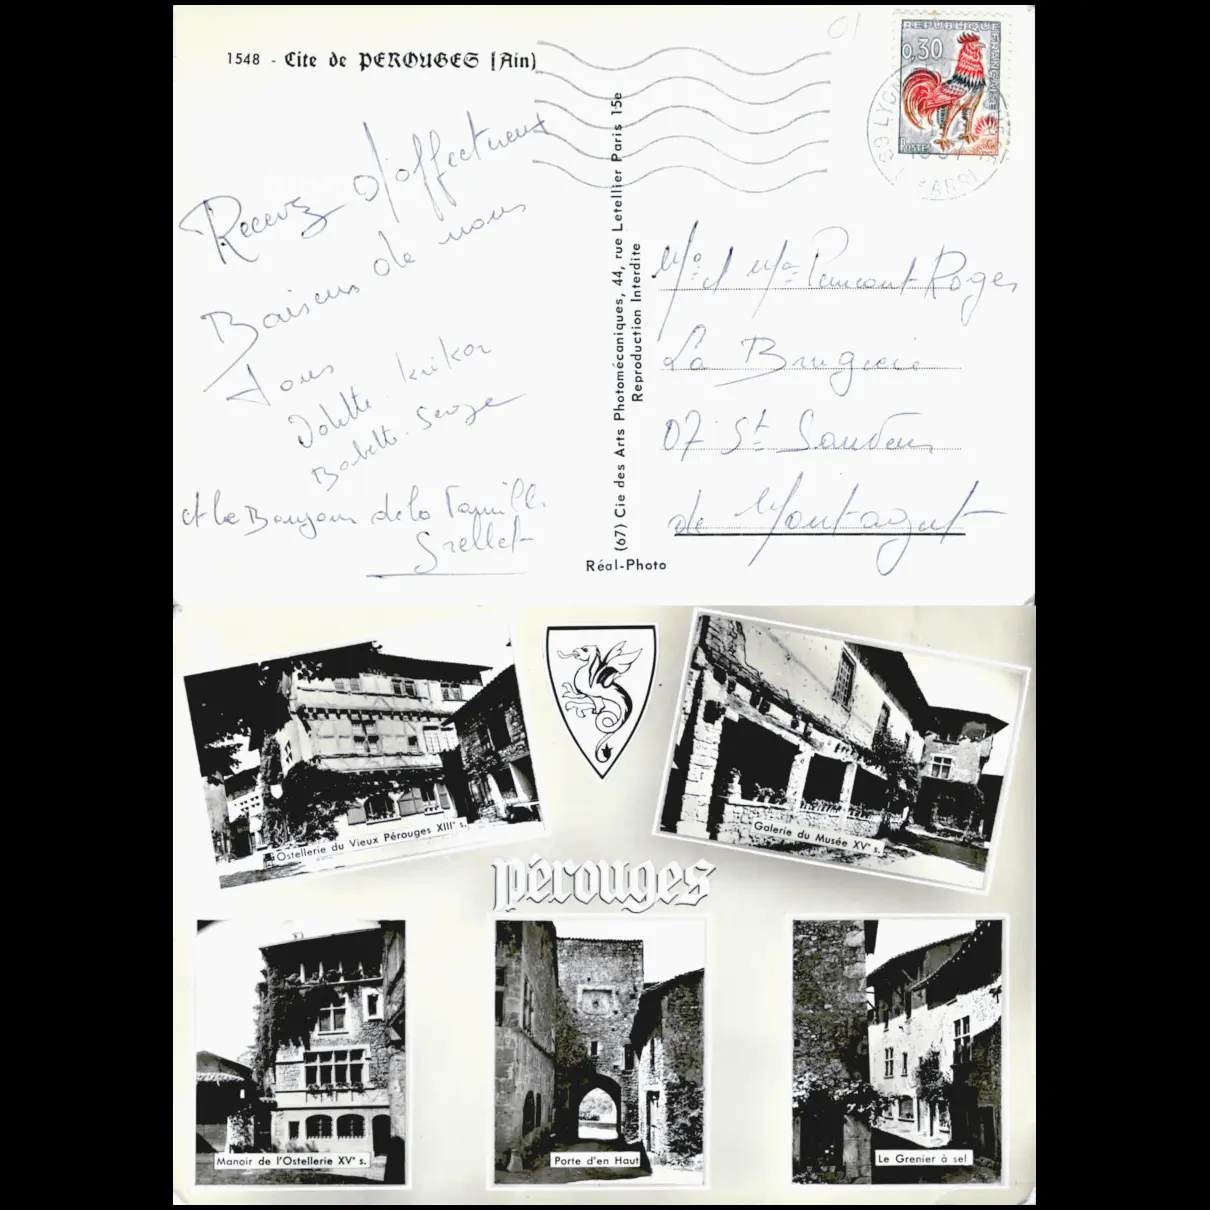 1548 - Cite de PEROUGES (Ain)
REPUBLIQUE FRANÇAISE
0,30
POSTES
Recevez d'affectueux
Baisers de nous
Tous
Krikor
Babette. Serge
et le Bonjour de la Famille
Grellet
(67) Cie des Arts Photomécaniques, 44, rue Letellier Paris 15e
Reproduction Interdite
Réal-Photo
Mr et Me Roger
La
07 St Sauveur
de Montagut
Ostellerie du Vieux Pérouges XIIIe s.
Galerie du Musée XVe s.
pérouges
Manoir de l'Ostellerie XVe s.
Porte d'en Haut
Le Grenier à sel